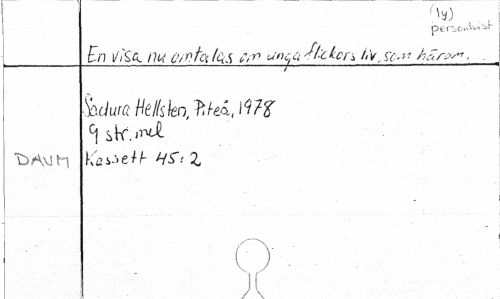 (ly)
personhist
En visa nu omtalas om unga flickors liv, som härom.
Sadura Hellsten, Piteå, 1978
9 str. mel
DAUM Kassett 45:2